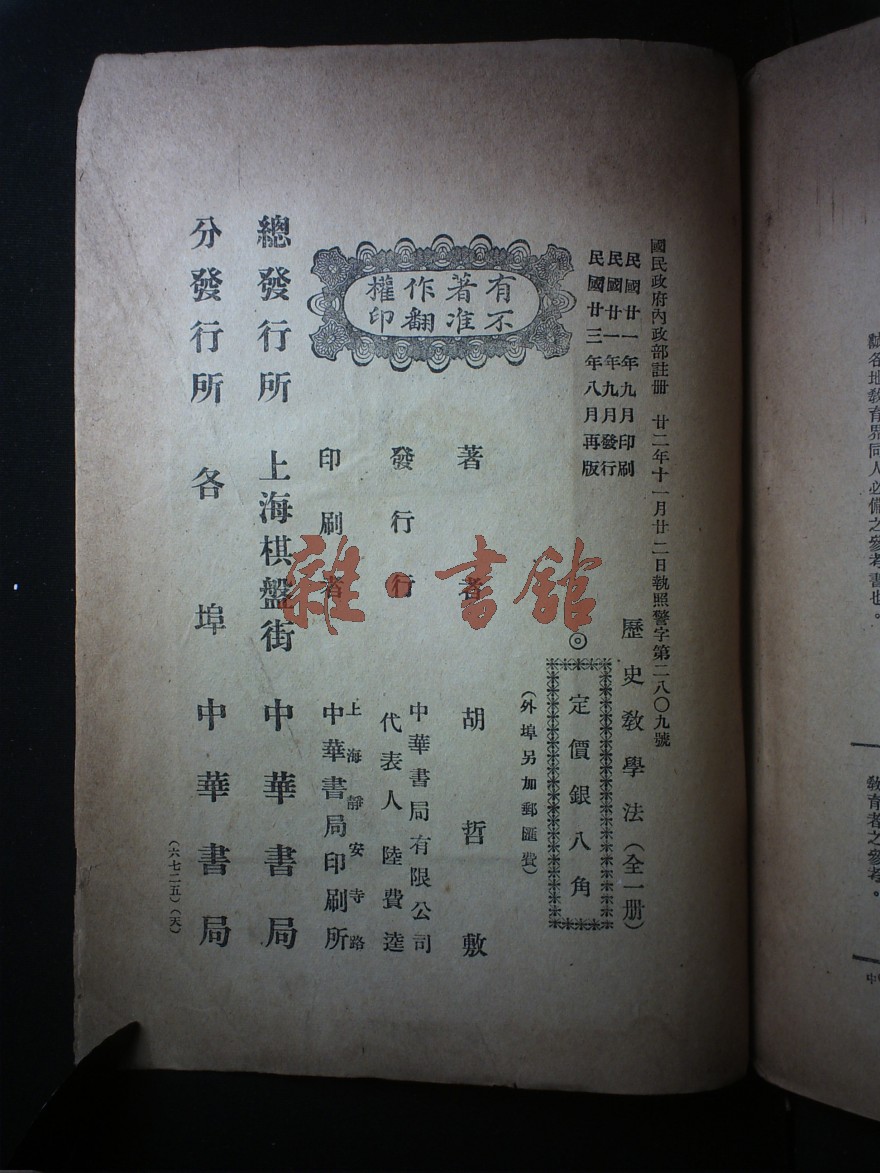 國民政府內政部註册 廿二年十一月廿二日執照警字第二八〇九號
民國廿一年九月印刷
民國廿一年九月發行
民國廿三年八月再版
歷史教學法(全一册)
◎定價銀八角
(外埠另加郵匯費)
有著作權
不准翻印
著者 胡哲敷
發行 中華書局有限公司
代表人 陸費逵
印刷者 上海靜安寺路
中華書局印刷所
總發行所 上海棋盤街 中華書局
分發行所 各埠 中華書局
(六七二五)(天)
雜·書館
各地教育界同人必備之參考書也。
教育者之參考。